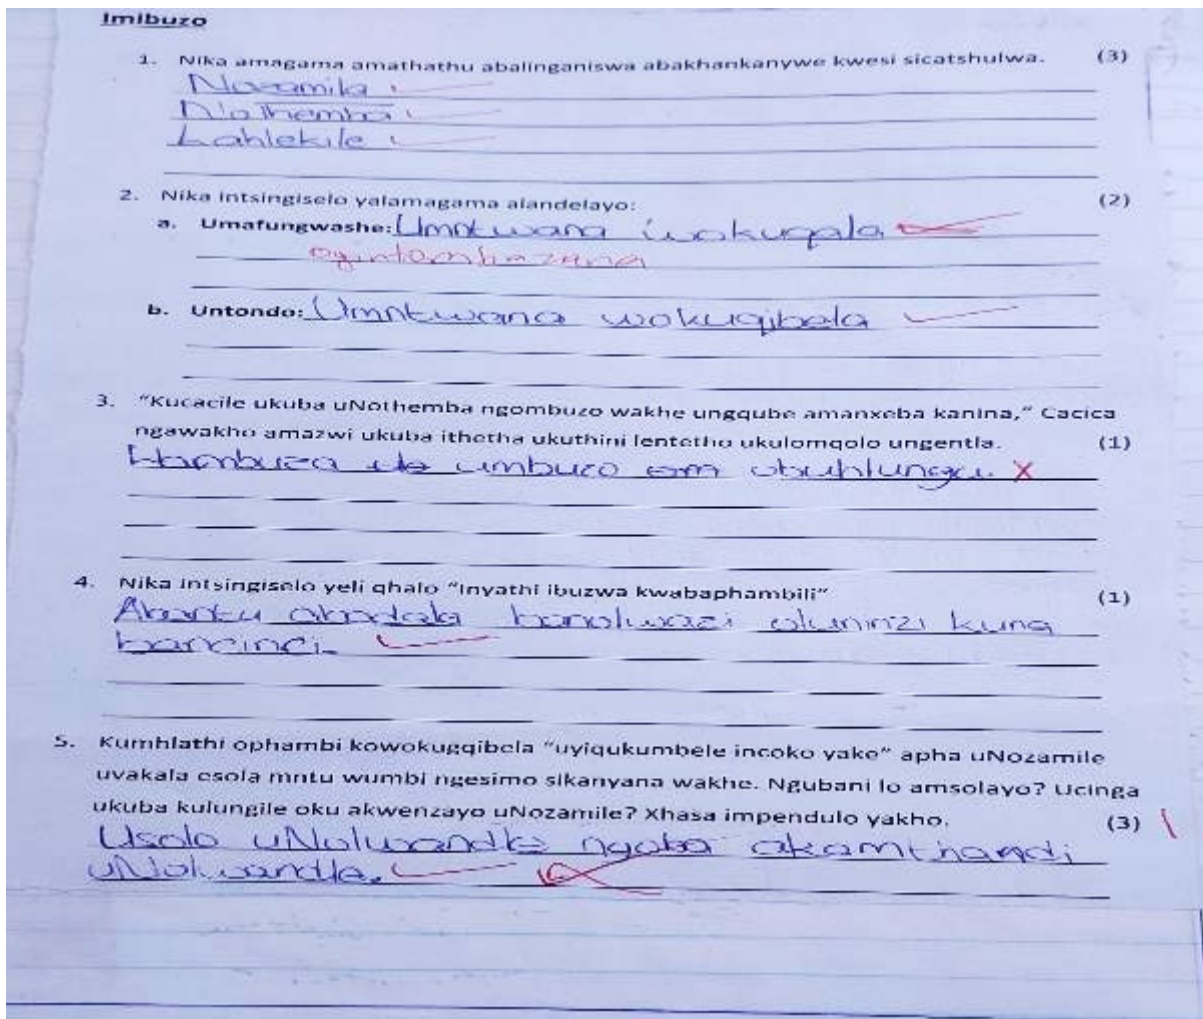 Imibuzo
1. Nika amagama amathathu abalinganiswa abakhankanywe kwesi sicatshulwa. (3)
Nozamile
Nothemba
Lahlekile
2. Nika intsingiselo yalamagama alandelayo: (2)
a. Umafungwashe: Umntwana wokuqala
oyintombazana
b. Untondo: Umntwana wokugqibela
3. "Kucacile ukuba uNothemba ngombuzo wakhe ungqube amanxeba kanina," Cacica
ngawakho amazwi ukuba ithetha ukuthini lentetho ukulomqolo ungentla. (1)
umbuzo obuhlungu.
4. Nika intsingiselo yeli qhalo "Inyathi ibuzwa kwabaphambili" (1)
Abantu abadala banolwazi oluninzi kuna
bancinci.
5. Kumhlathi ophambi kowokugqibela "uyiqukumbele incoko yake" apha uNozamile
uvakala esola mntu wumbi ngesimo sikanyana wakhe. Ngubani lo amsolayo? Ucinga
ukuba kulungile oku akwenzayo uNozamile? Xhasa impendulo yakho. (3)
Usolo uNolwandle ngoba akamthandi
uNolwandle.